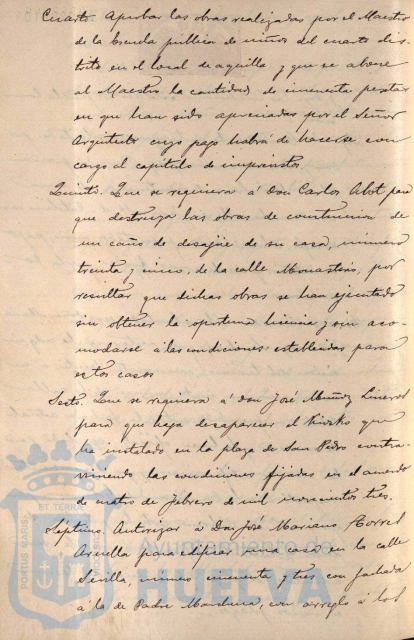 Cuarto. Aprobar las obras realizadas por el Maestro
de la Escuela pública de niños del cuarto dis-
trito en el local de aquella, y que se abone
al Maestro la cantidad de cincuenta pesetas
en que han sido apreciadas por el Señor
Arquitecto cuyo pago habrá de hacerse con
cargo al capítulo de imprevistos.
Quinto. Que se requiera á Don Carlos Alot para
que destruya las obras de construccion de
un caño de desagüe de su casa, número
treinta y cinco, de la calle Monasterio, por
resultar que dichas obras se han ejecutado
sin obtener la oportuna licencia y sin aco-
modarse á las condiciones establecidas para
estos casos
Sexto. Que se requiera á don José Muñoz
para que haga desaparecer el Kiosko que
ha instalado en la plaza de San Pedro contra-
viniendo las condiciones fijadas en el acuerdo
de cuatro de Febrero de mil novecientos tres.
Séptimo. Autorizar á Don José Mariano
para edificar una casa en la calle
Sevilla, número cincuenta y tres con fachada
á la de Padre Marchena, con arreglo á los
PORTUS MARIS ET TERRAE
Ayuntamiento de
HUELVA